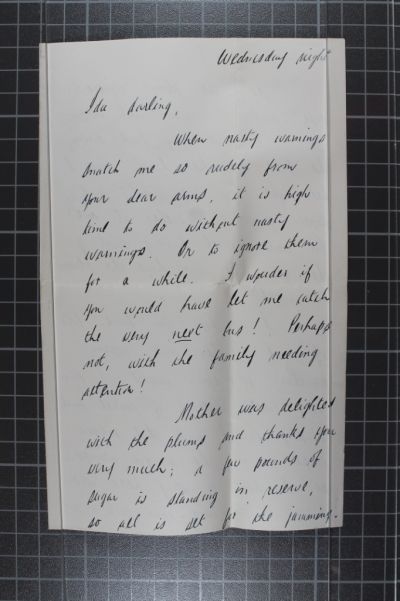 Wednesday night
Ida darling,
When nasty warnings
snatch me so rudely from
your dear arms, it is high
time to do without nasty
warnings. Or to ignore them
for a while. I wonder if
you would have let me catch
the very next bus! Perhaps
not, with the family needing
attention!
Mother was delighted
with the plums and thanks you
very much; a few pounds of
sugar is standing in reserve,
so all is set for the jamming.